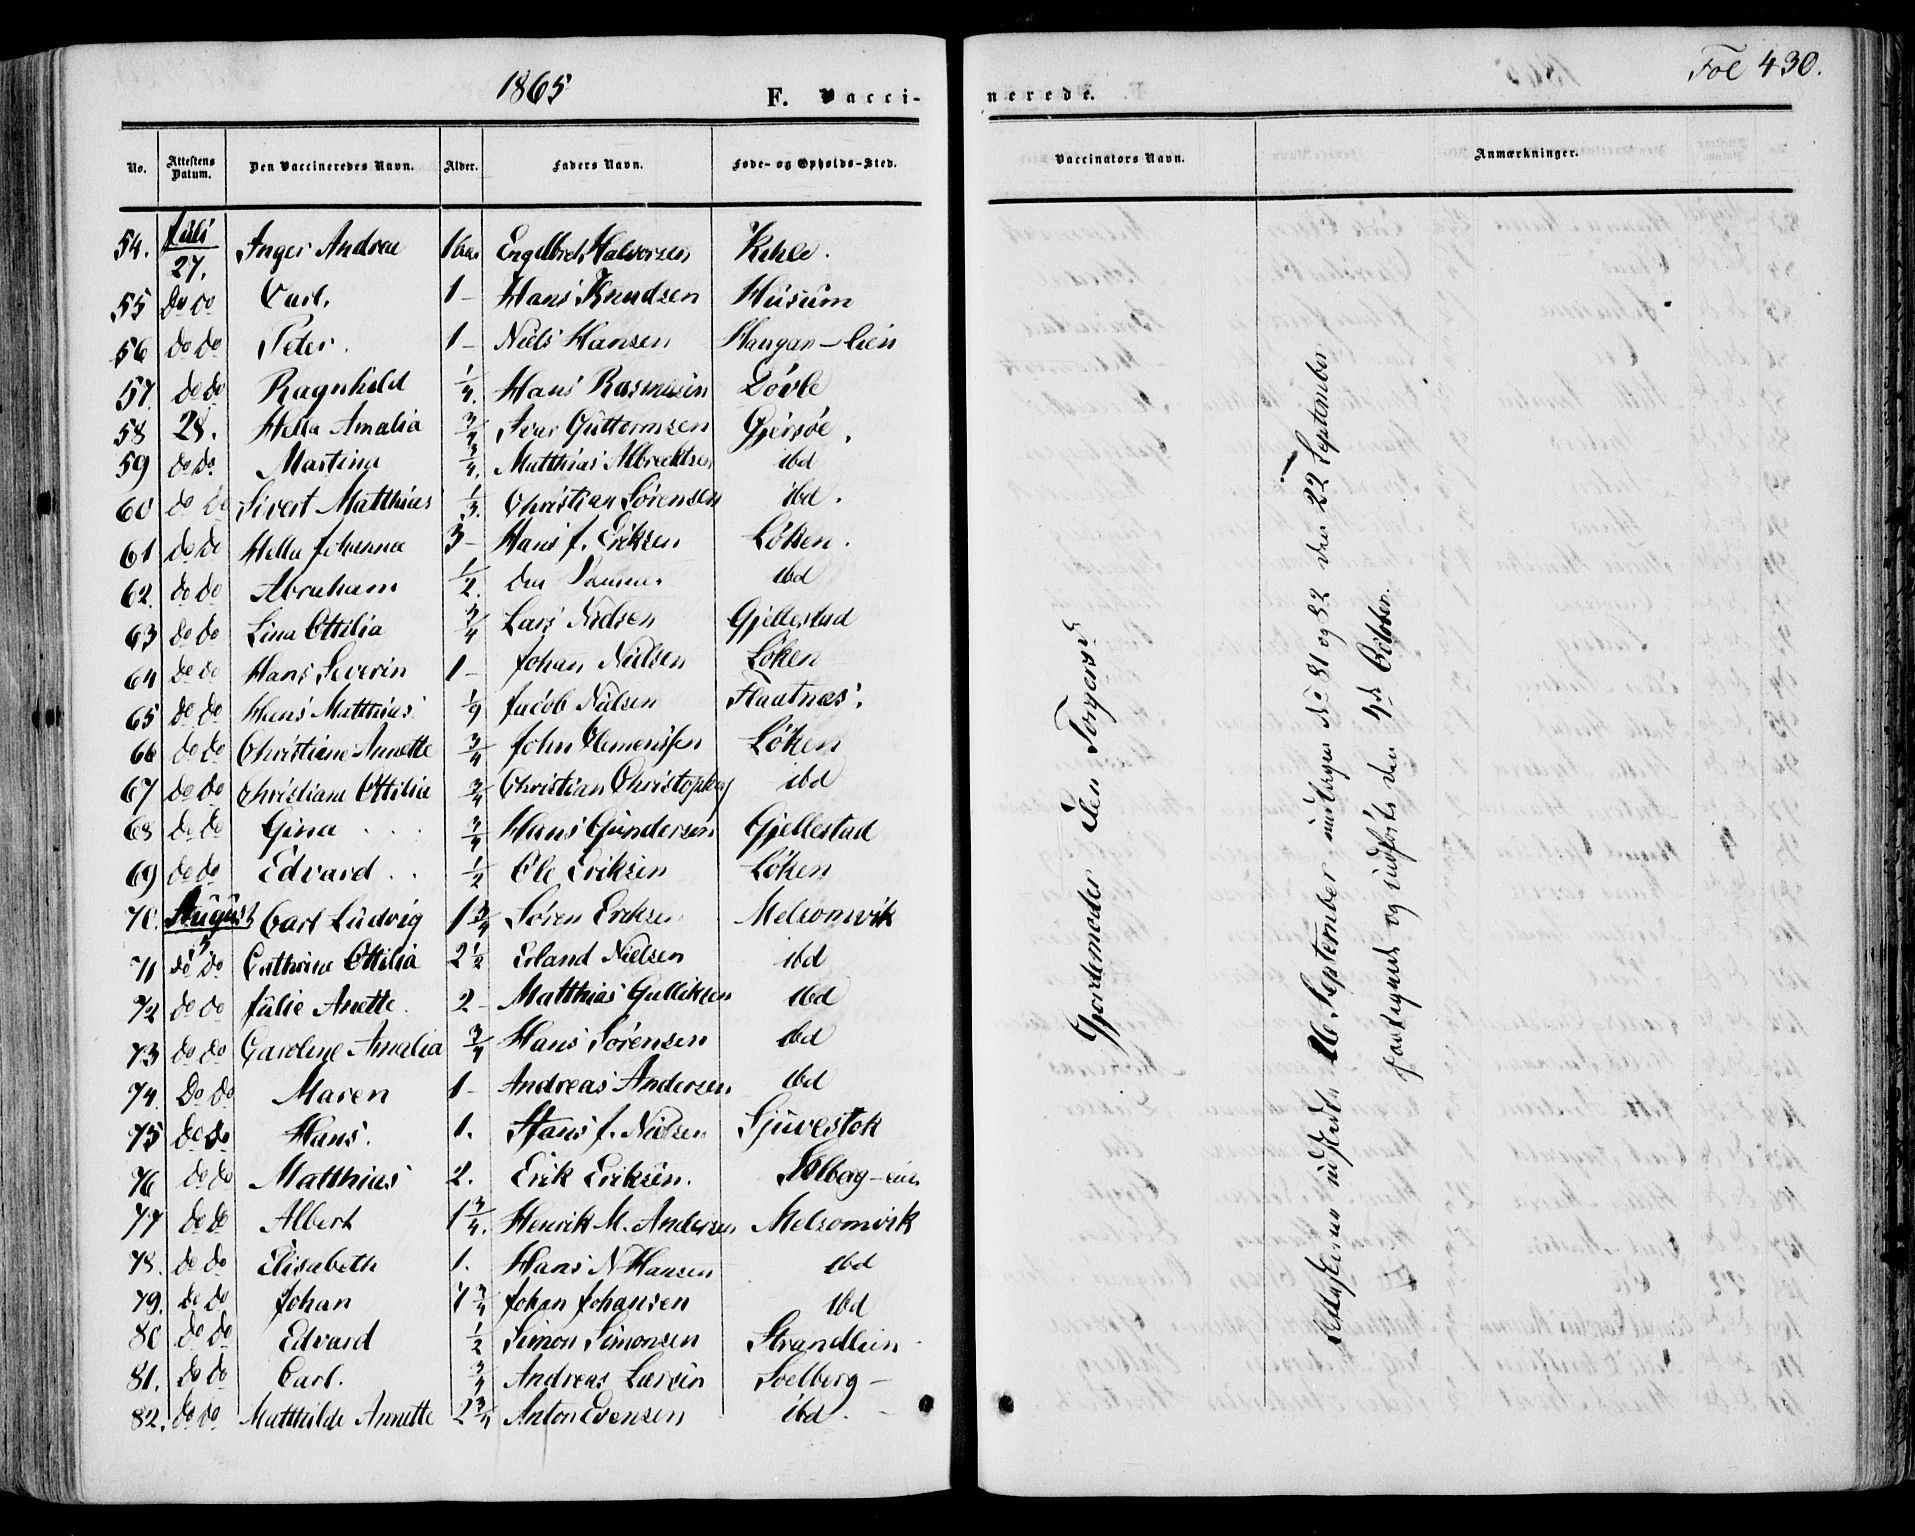 1865
F. Vacci-
No. | Attestens Datum. | Den Vaccineredes Navn. | Alder. | Faders Navn. | Føde- og Opholds-Sted.
54. | Juli 27. | Inger Andrea | 1 aar | Engelbret Halvorsen | Kihle.
55 | Do do | Carl. | 1 - | Hans Knudsen | Husum
56 | do do | Peter. | 1 - | Niels Hansen | Haugan-eien
57. | do do | Ragnhild | 1/4. | Hans Rasmusen | Løvle
58 | 28. | Hella Amalia | 3/4 | Ivar Guttormsen | Gjersøe.
59 | do do | Martina | 3/4. | Matthias Albrechtsen | ibd
60 | do do | Sivert Matthias | 1/3. | Christian Sørensen | ibd.
61 | do do | Hella Johanna | 3 - | Hans J. Eriksen | Løken.
62. | do do | Abraham | 1/2. | den Samme. | ibd
63 | do do | Lina Ottilia | 3/4 | Lars Nielsen | Gjellestad
64 | do do | Hans Severin | 1 - | Johan Nielsen | Løken
65 | do do | Hans Matthias. | 1/9 | Jacob Nielsen | Flautnæs.
66 | do do | Christiane Annette | 3/4 | John Clemensen | Løken
67 | do do | Christiane Ottilia | 3/4 | Christian Christophers | ibd
68 | do do | Gina . . . | 3/4 | Hans Gundersen | Gjellestad
69 | do do | Edvard . . | 1/2 | Ole Eriksen | Løken
70. | August 5 | Carl Ludvig | 1 3/4 | Søren Eriksen | Melsomvik
71 | do do | Cathrine Ottilia | 2 1/2 | Erland Nielsen | ibd
72 | do do | Julie Anette. | 2 - | Matthias Gulliksen | ibd
73 | do do | Caroline Amalia | 3/4 | Hans Sørensen | ibd
74. | Do do | Maren | 1 - | Andreas Andersen | ibd
75 | do do | Hans. | 1. | Hans J. Nielsen | Sjuvestok
76 | do do | Matthias | 2. | Erik Eriksen. | Solberg-eie
77 | do do | Albert | 1 3/4. | Henrik M. Andersen | Melsomvik
78. | do do | Elisabeth | 1. | Hans N Hansen | ibd
79. | do do | Johan | 1 3/4 | Johan Johansen | ibd
80 | do do | Edvard | 1/2 | Simon Simonsen | Strandeien
81. | do do | Carl. | 3/4 | Andreas Larsen | Soelberg -
82. | do do | Matthilde Annette | 2 3/4 | Anton Evensen | ibd. -
Fol 430.
nerede.
Vaccinators Navn. | Anmærkninger.
Gjordemoder Elen Torgersd.
Attesterne udstedte 26 September undtagen No 81 og 82 den 22 September
og indførte den 4de October.